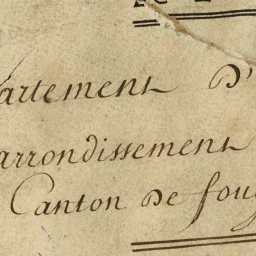 artement D'
arrondissement
Canton De foug